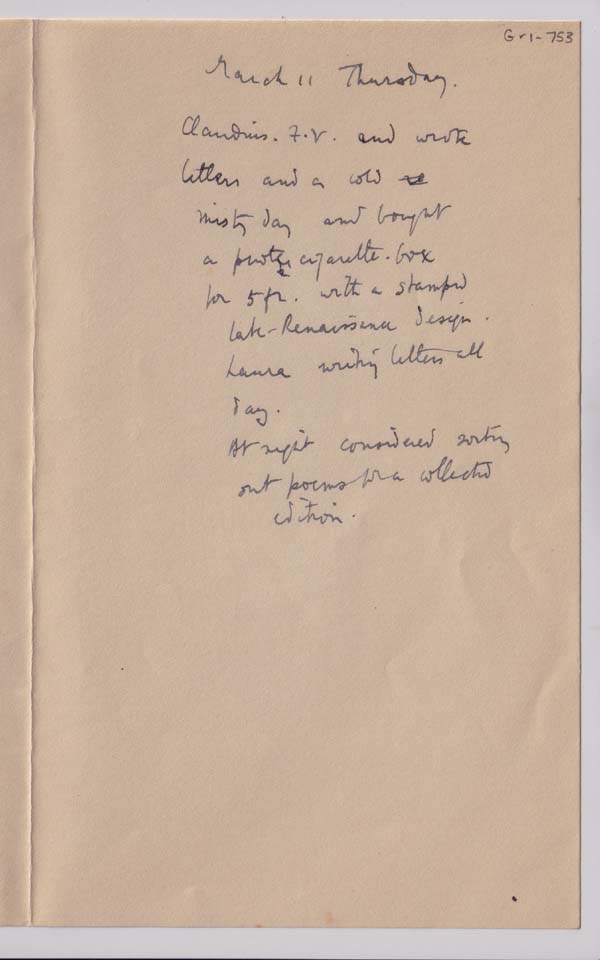 Gr1-753
March 11 Thursday.
Claudius. F.V. and wrote
letters and a cold
misty day and bought
a cigarette-box
for 5fr. with a stamped
late-Renaissance design.
Laura writing letters all
day.
At night considered sorting
out poems for a collected
edition.